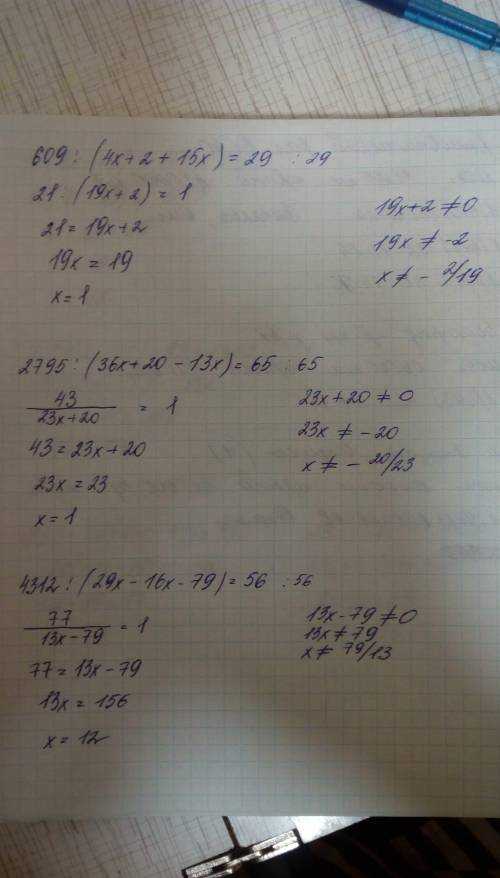 609 : (4x + 2 + 15x) = 29 : 29
21 : (19x + 2) = 1
21 = 19x + 2
19x = 19
x = 1
19x + 2 ≠ 0
19x ≠ -2
x ≠ - 2/19
2795 : (36x + 20 - 13x) = 65 : 65
43
23x + 20 = 1
43 = 23x + 20
23x = 23
x = 1
23x + 20 ≠ 0
23x ≠ -20
x ≠ - 20/23
4312 : (29x - 16x - 79) = 56 : 56
77
13x - 79 = 1
77 = 13x - 79
13x = 156
x = 12
13x - 79 ≠ 0
13x ≠ 79
x ≠ 79/13